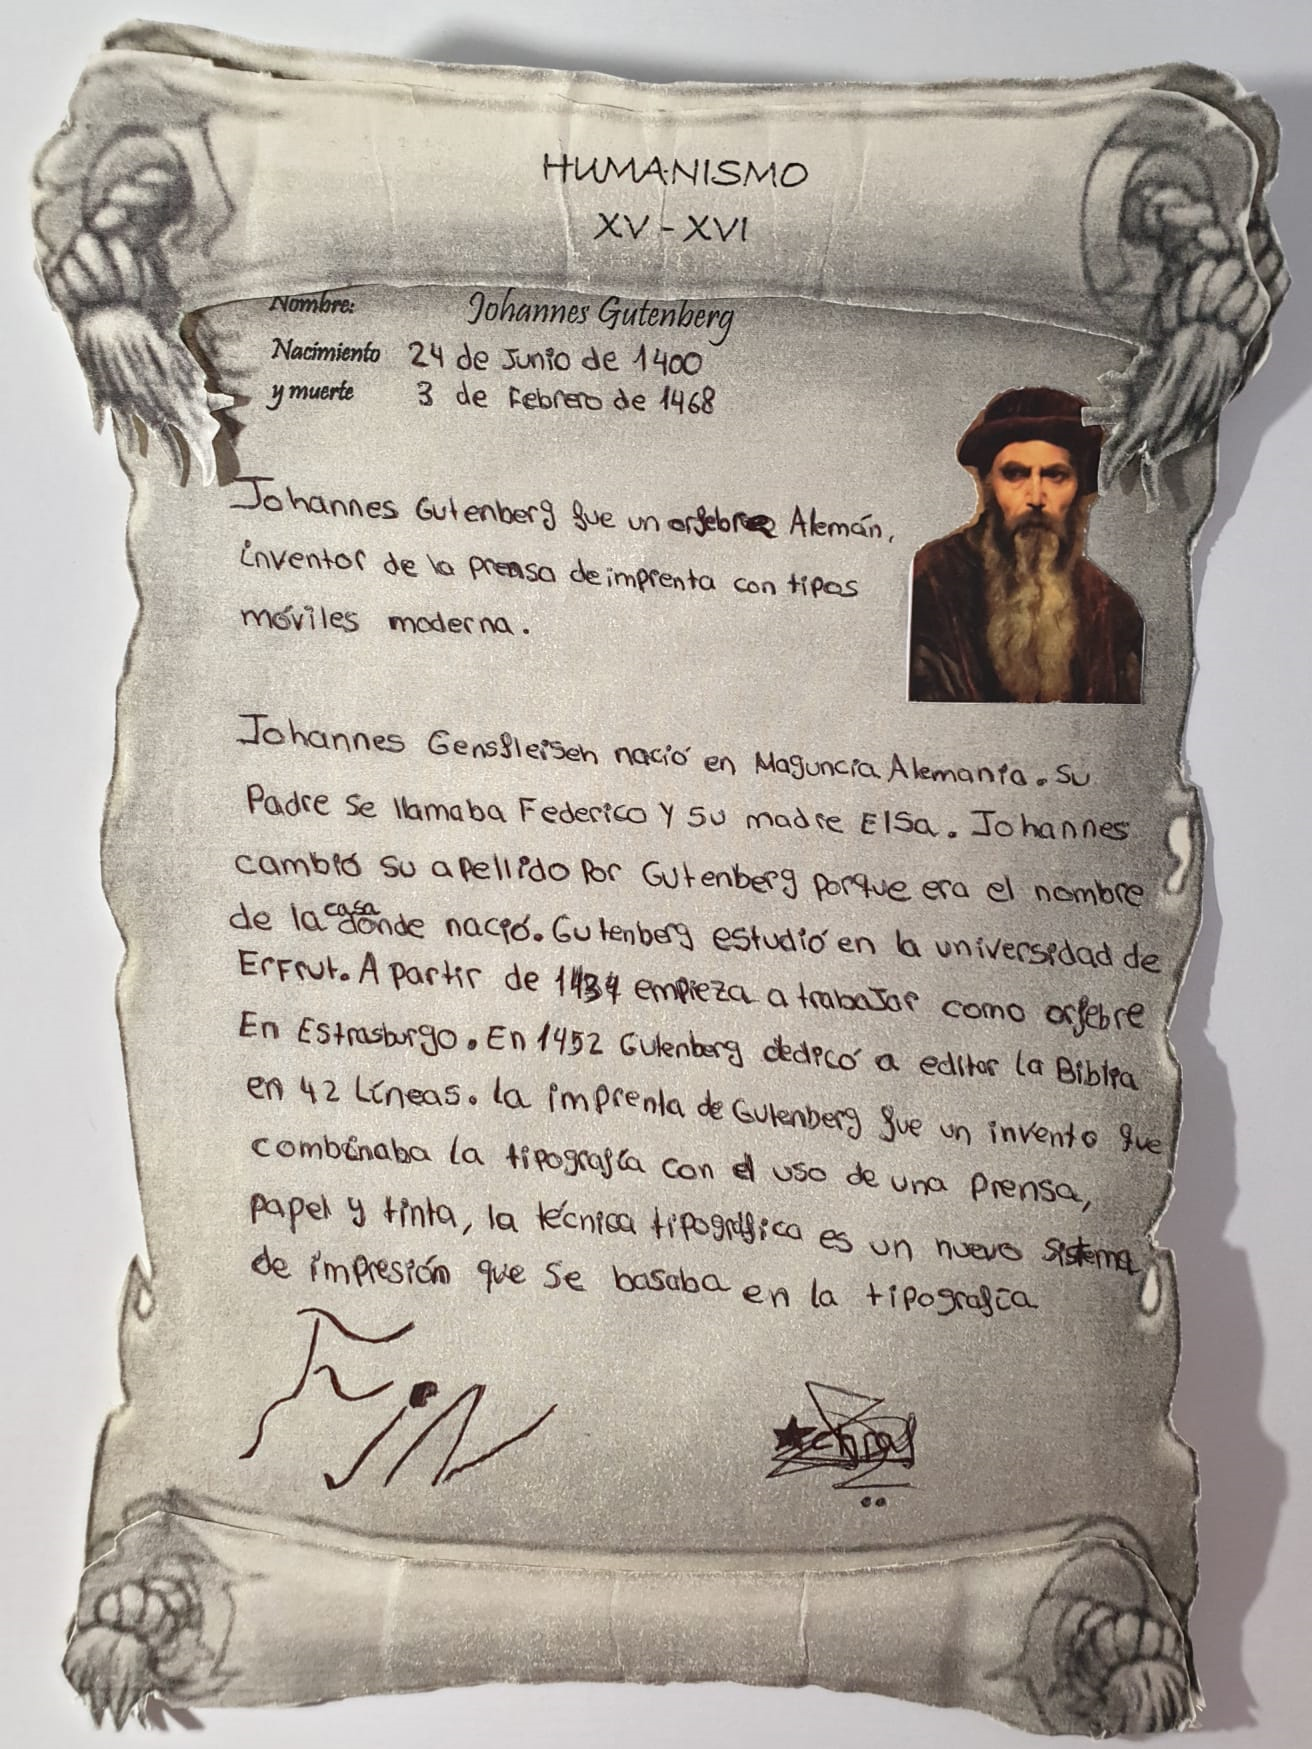 HUMANISMO
XV - XVI
Nombre: Johannes Gutenberg
Nacimiento 24 de Junio de 1400
y muerte 3 de Febrero de 1468
Johannes Gutenberg fue un orfebre Alemán,
inventor de la prensa de imprenta con tipos
móviles moderna.
Johannes Gensfleiseh nació en Maguncia Alemania. Su
Padre Se llamaba Federico Y Su madre ElSa. Johannes
cambió su apellido Por Gutenberg porque era el nombre
de la casa donde nació. Gutenberg estudió en la universidad de
ErFrut. A partir de 1434 empieza a trabaJar como orfebre
En Estrasburgo. En 1452 Gutenberg dedicó a editar la Biblia
en 42 Líneas. la imprenta de Gutenberg fue un invento que
combinaba la tipografía con el uso de una prensa,
papel y tinta, la técnica tipográfica es un nuevo sistema
de impresión que Se basaba en la tipografía
FiN